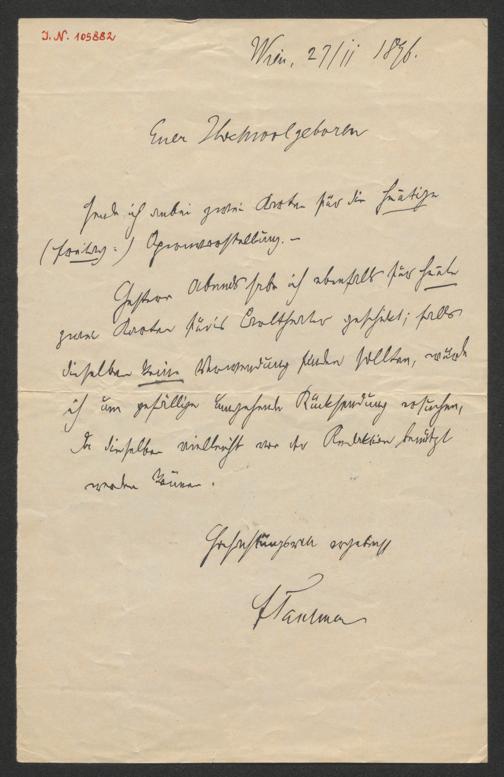 J. N. 105882
Wien, 27/11 1896.
Euer Hochwolgeboren
sende ich anbei zwei Karten für die heutige
(Freitag-) Opernvorstellung. –
Gestern Abends habe ich ebenfalls für heute
zwei Karten fürs Carltheater geschickt; falls
dieselben keine Verwendung finden sollten, würde
ich um gefällige umgehende Rücksendung ersuchen,
da dieselben vielleicht von der Redaktion benützt
werden können.
Hochachtungsvoll ergebenst